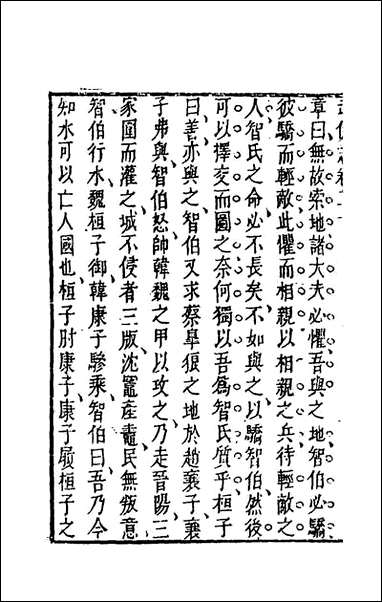 章曰無故索地諸大夫必懼吾與之地智伯必驕
彼驕而輕敵此懼而相親以相親之兵待輕敵之
人智氏之命必不長矣不如與之以驕智伯然後
可以擇交而圖之奈何獨以吾為智氏質乎桓子
曰善亦與之智伯又求蔡皐狼之地於趙襄子襄
子弗與智伯怒帥韓魏之甲以攻之乃走晉陽三
家圍而灌之城不侵者三版沈竈產鼃民無叛意
智伯行水魏桓子御韓康子驂乘智伯曰吾乃今
知水可以亡人國也桓子肘康子康子履桓子之